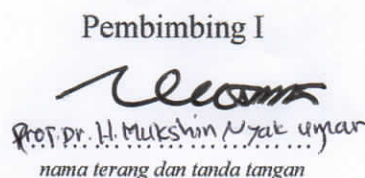 Pembimbing I
Prof. Dr. H. Mukshin Nyak Umar
nama terang dan tanda tangan